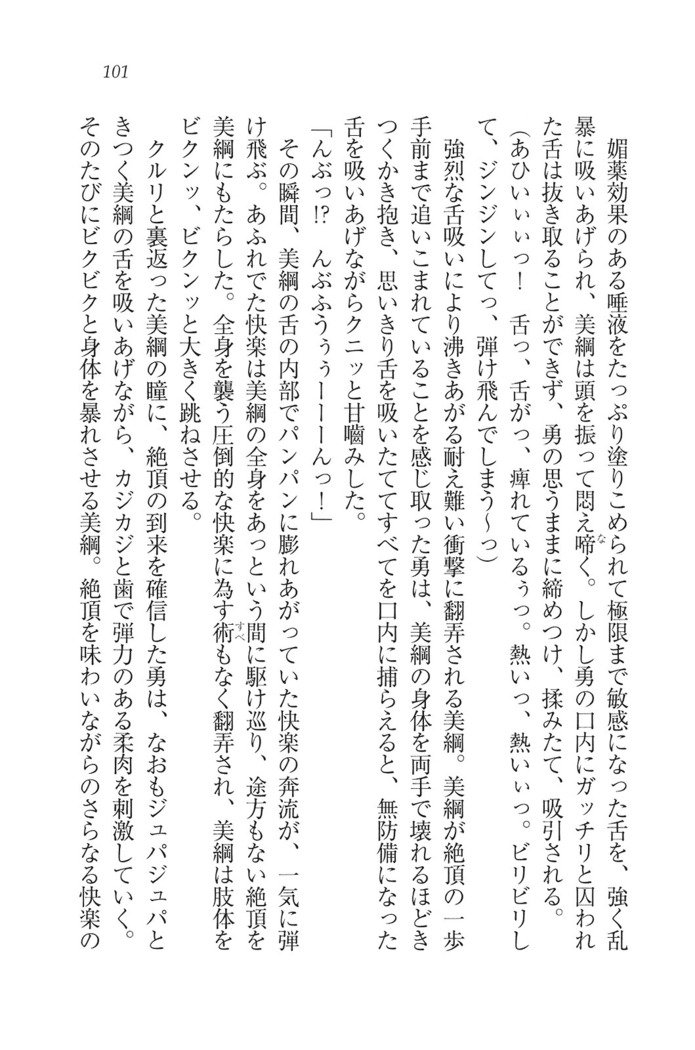 101
媚薬効果のある唾液をたっぷり塗りこめられて極限まで敏感になった舌を、強く乱
暴に吸いあげられ、美綱は頭を振って悶え啼く。しかし勇の口内にガッチリと囚われ
た舌は抜き取ることができず、勇の思うままに締めつけ、揉みたて、吸引される。
(あひいぃぃっ! 舌っ、舌がっ、痺れているぅっ。熱いっ、熱いぃっ。ビリビリし
て、ジンジンしてっ、弾け飛んでしまう〜っ)
強烈な舌吸いにより沸きあがる耐え難い衝撃に翻弄される美綱。美綱が絶頂の一歩
手前まで追いこまれていることを感じ取った勇は、美綱の身体を両手で壊れるほどき
つくかき抱き、思いきり舌を吸いたててすべてを口内に捕らえると、無防備になった
舌を吸いあげながらクニッと甘嚙みした。
「んぶっ!? んぶふうぅぅーーーんっ!」
その瞬間、美綱の舌の内部でパンパンに膨れあがっていた快楽の奔流が、一気に弾
け飛ぶ。あふれでた快楽は美綱の全身をあっという間に駆け巡り、途方もない絶頂を
美綱にもたらした。全身を襲う圧倒的な快楽に為す術もなく翻弄され、美綱は肢体を
ビクンッ、ビクンッと大きく跳ねさせる。
クルリと裏返った美綱の瞳に、絶頂の到来を確信した勇は、なおもジュパジュパと
きつく美綱の舌を吸いあげながら、カジカジと歯で弾力のある柔肉を刺激していく。
そのたびにビクビクと身体を暴れさせる美綱。絶頂を味わいながらのさらなる快楽の